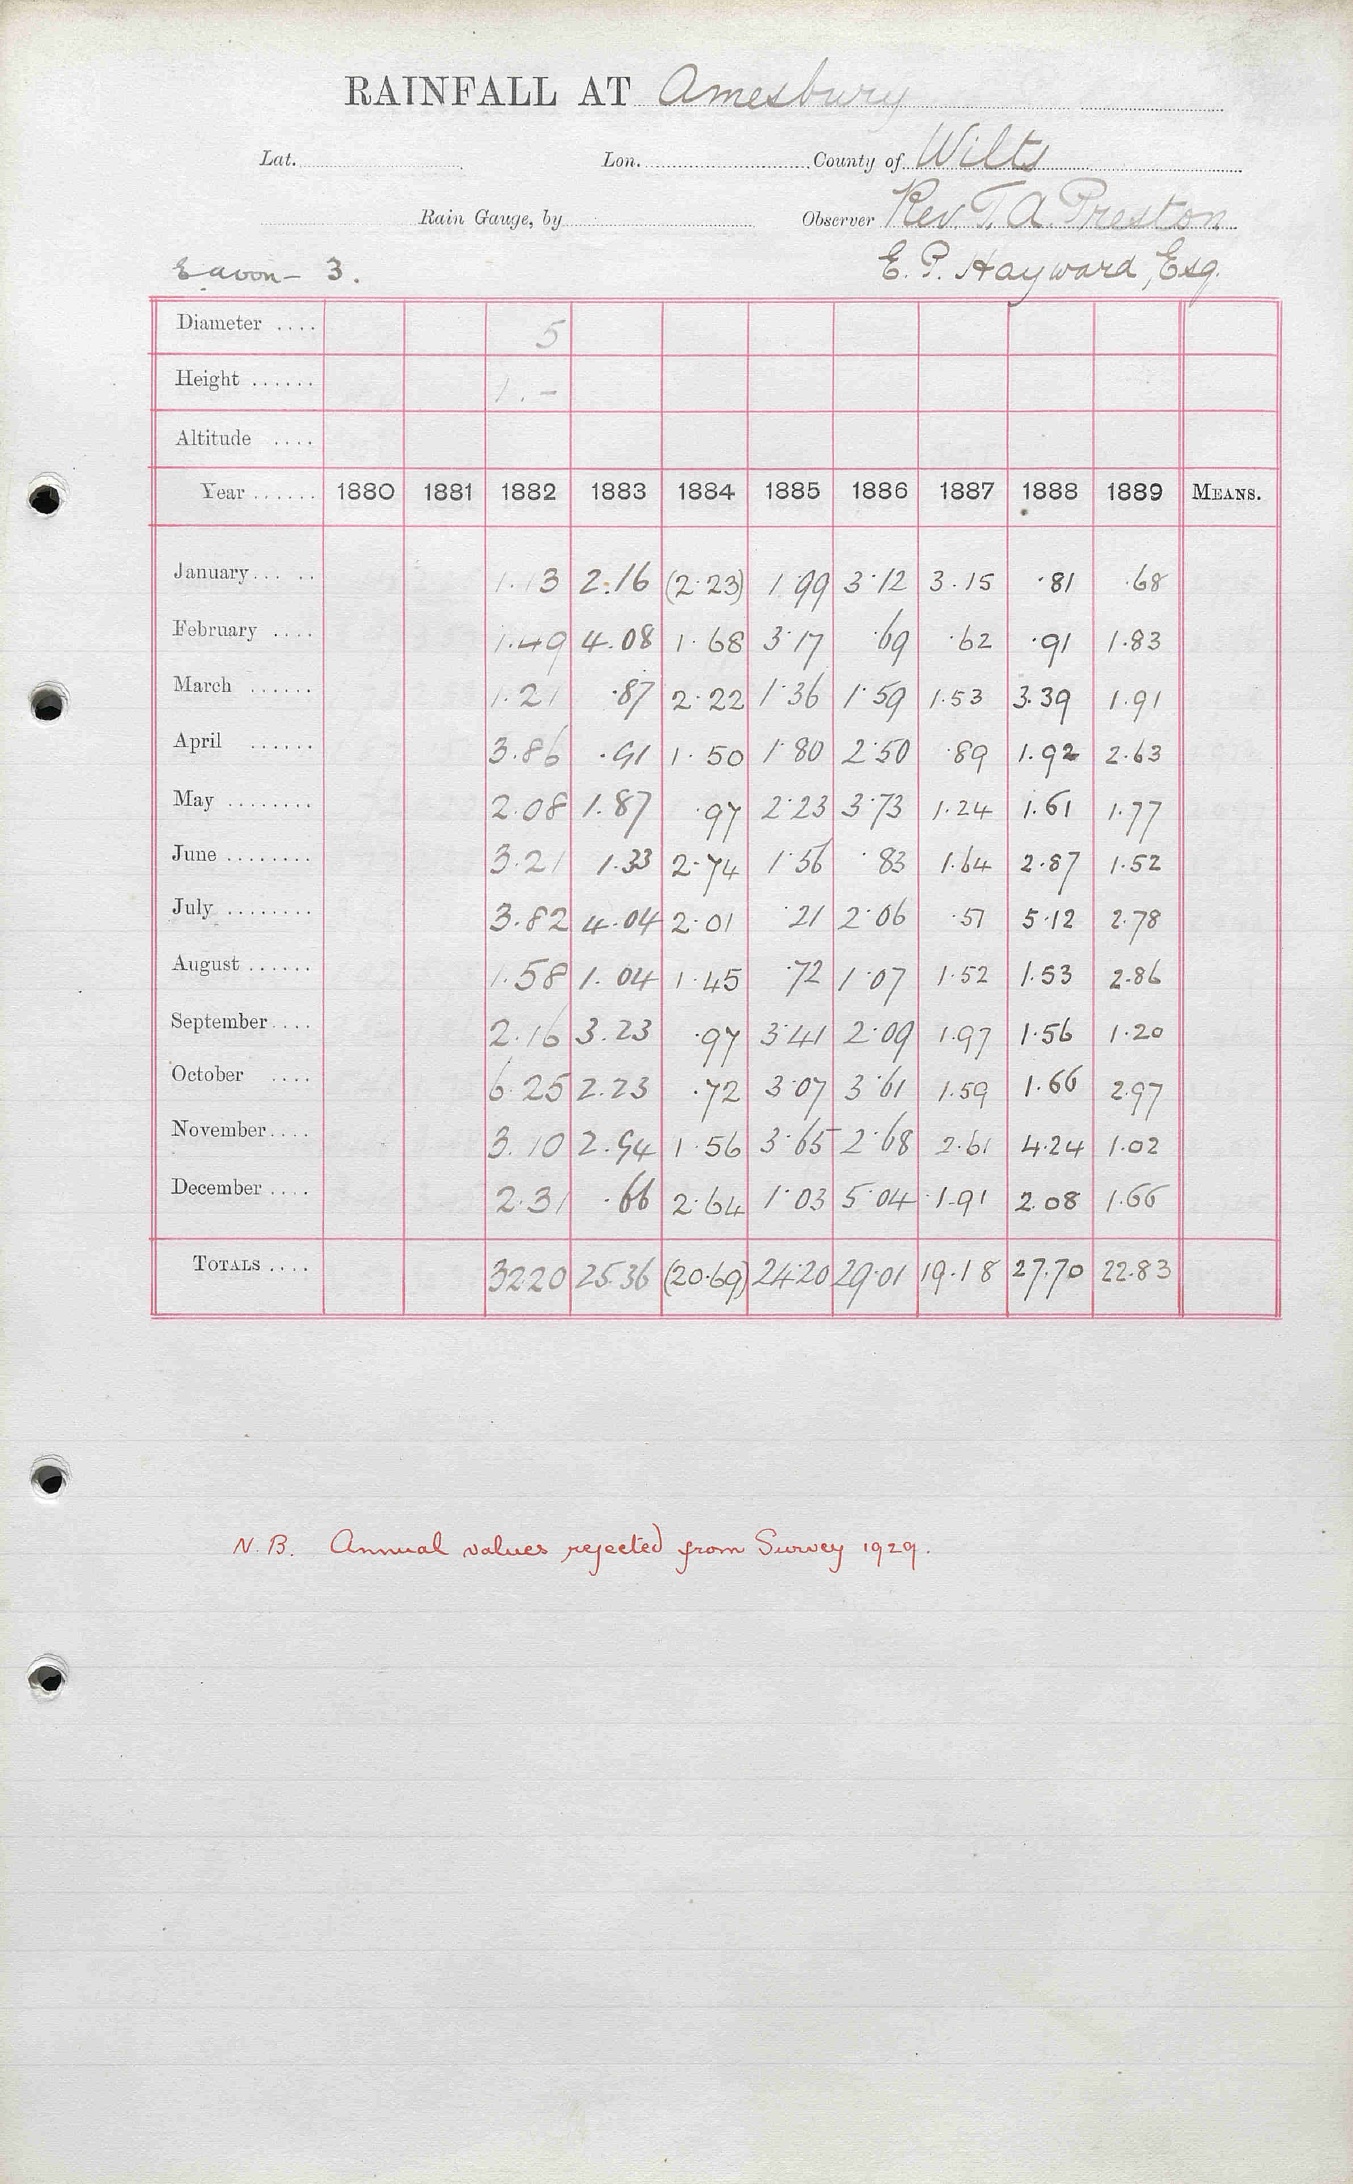 RAINFALL AT Amesbury
Lat. Lon. County of Wilts
Rain Gauge, by Observer Rev. T. A. Preston
E avon - 3. E. P. Hayward, Esq.
Diameter .... 5
Height ...... 1. -
Altitude ....
Year ...... 1880 1881 1882 1883 1884 1885 1886 1887 1888 1889 MEANS.
January ... .. 1.13 2.16 (2.23) 1.99 3.12 3.15 .81 .68
February .... 1.49 4.08 1.68 3.17 .69 .62 .91 1.83
March ...... 1.21 .87 2.22 1.36 1.59 1.53 3.39 1.91
April ...... 3.86 .91 1.50 1.80 2.50 .89 1.92 2.63
May ........ 2.08 1.87 .97 2.23 3.73 1.24 1.61 1.77
June ........ 3.21 1.33 2.74 1.56 .83 1.64 2.87 1.52
July ........ 3.82 4.04 2.01 .21 2.06 .51 5.12 2.78
August ...... 1.58 1.04 1.45 .72 1.07 1.52 1.53 2.86
September .... 2.16 3.23 .97 3.41 2.09 1.97 1.56 1.20
October .... 6.25 2.23 .72 3.07 3.61 1.59 1.66 2.97
November .... 3.10 2.94 1.56 3.65 2.68 2.61 4.24 1.02
December .... 2.31 .66 2.64 1.03 5.04 1.91 2.08 1.66
TOTALS .... 32.20 25.36 (20.69) 24.20 29.01 19.18 27.70 22.83
N.B. Annual values rejected from Survey 1929.